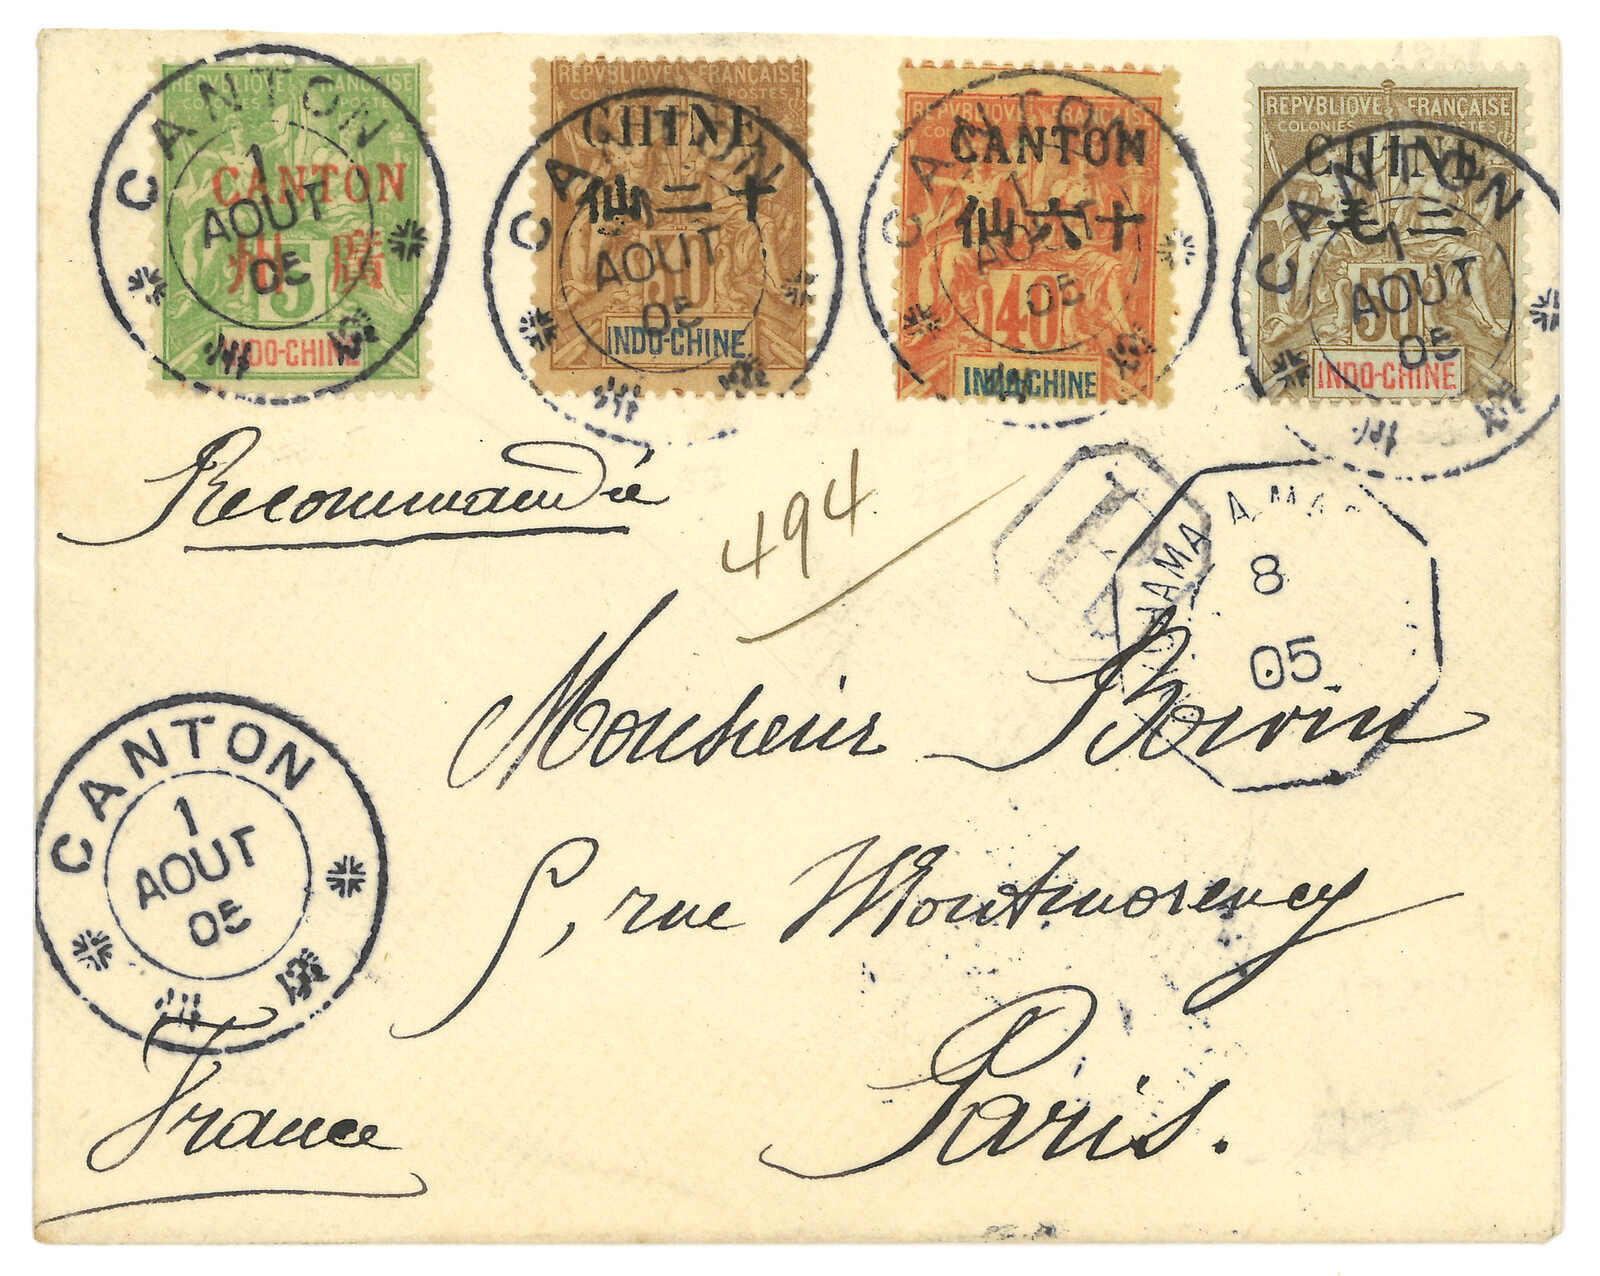 REPVBLIQVE FRANÇAISE
COLONIES POSTES
CANTON
州 廣
5
INDO-CHINE
CANTON
1
AOUT
05
REPVBLIQVE FRANÇAISE
COLONIES POSTES
CHINE
仙二十
30
INDO-CHINE
CANTON
1
AOUT
05
CANTON
仙六十
40
INDO-CHINE
CANTON
1
AOUT
05
REPVBLIQVE FRANÇAISE
COLONIES POSTES
CHINE
毛三
50
INDO-CHINE
CANTON
1
AOUT
05
Recommandée
494
HAMA A MA
8
05
Monsieur Boivin
5, rue Montmorency
Paris.
CANTON
1
AOUT
05
France